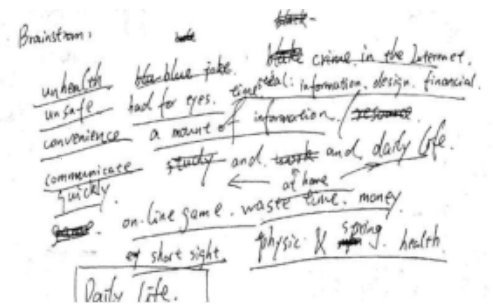 Brainstrom:
unhealth blue joke. crime in the Internet.
unsafe bad for eyes. steal: information, design. financial.
convenience a mount of information /
communicate study and work and daily life.
quickly at home
on-line game. waste time. money
short sight physic & spring. health
Daily life.